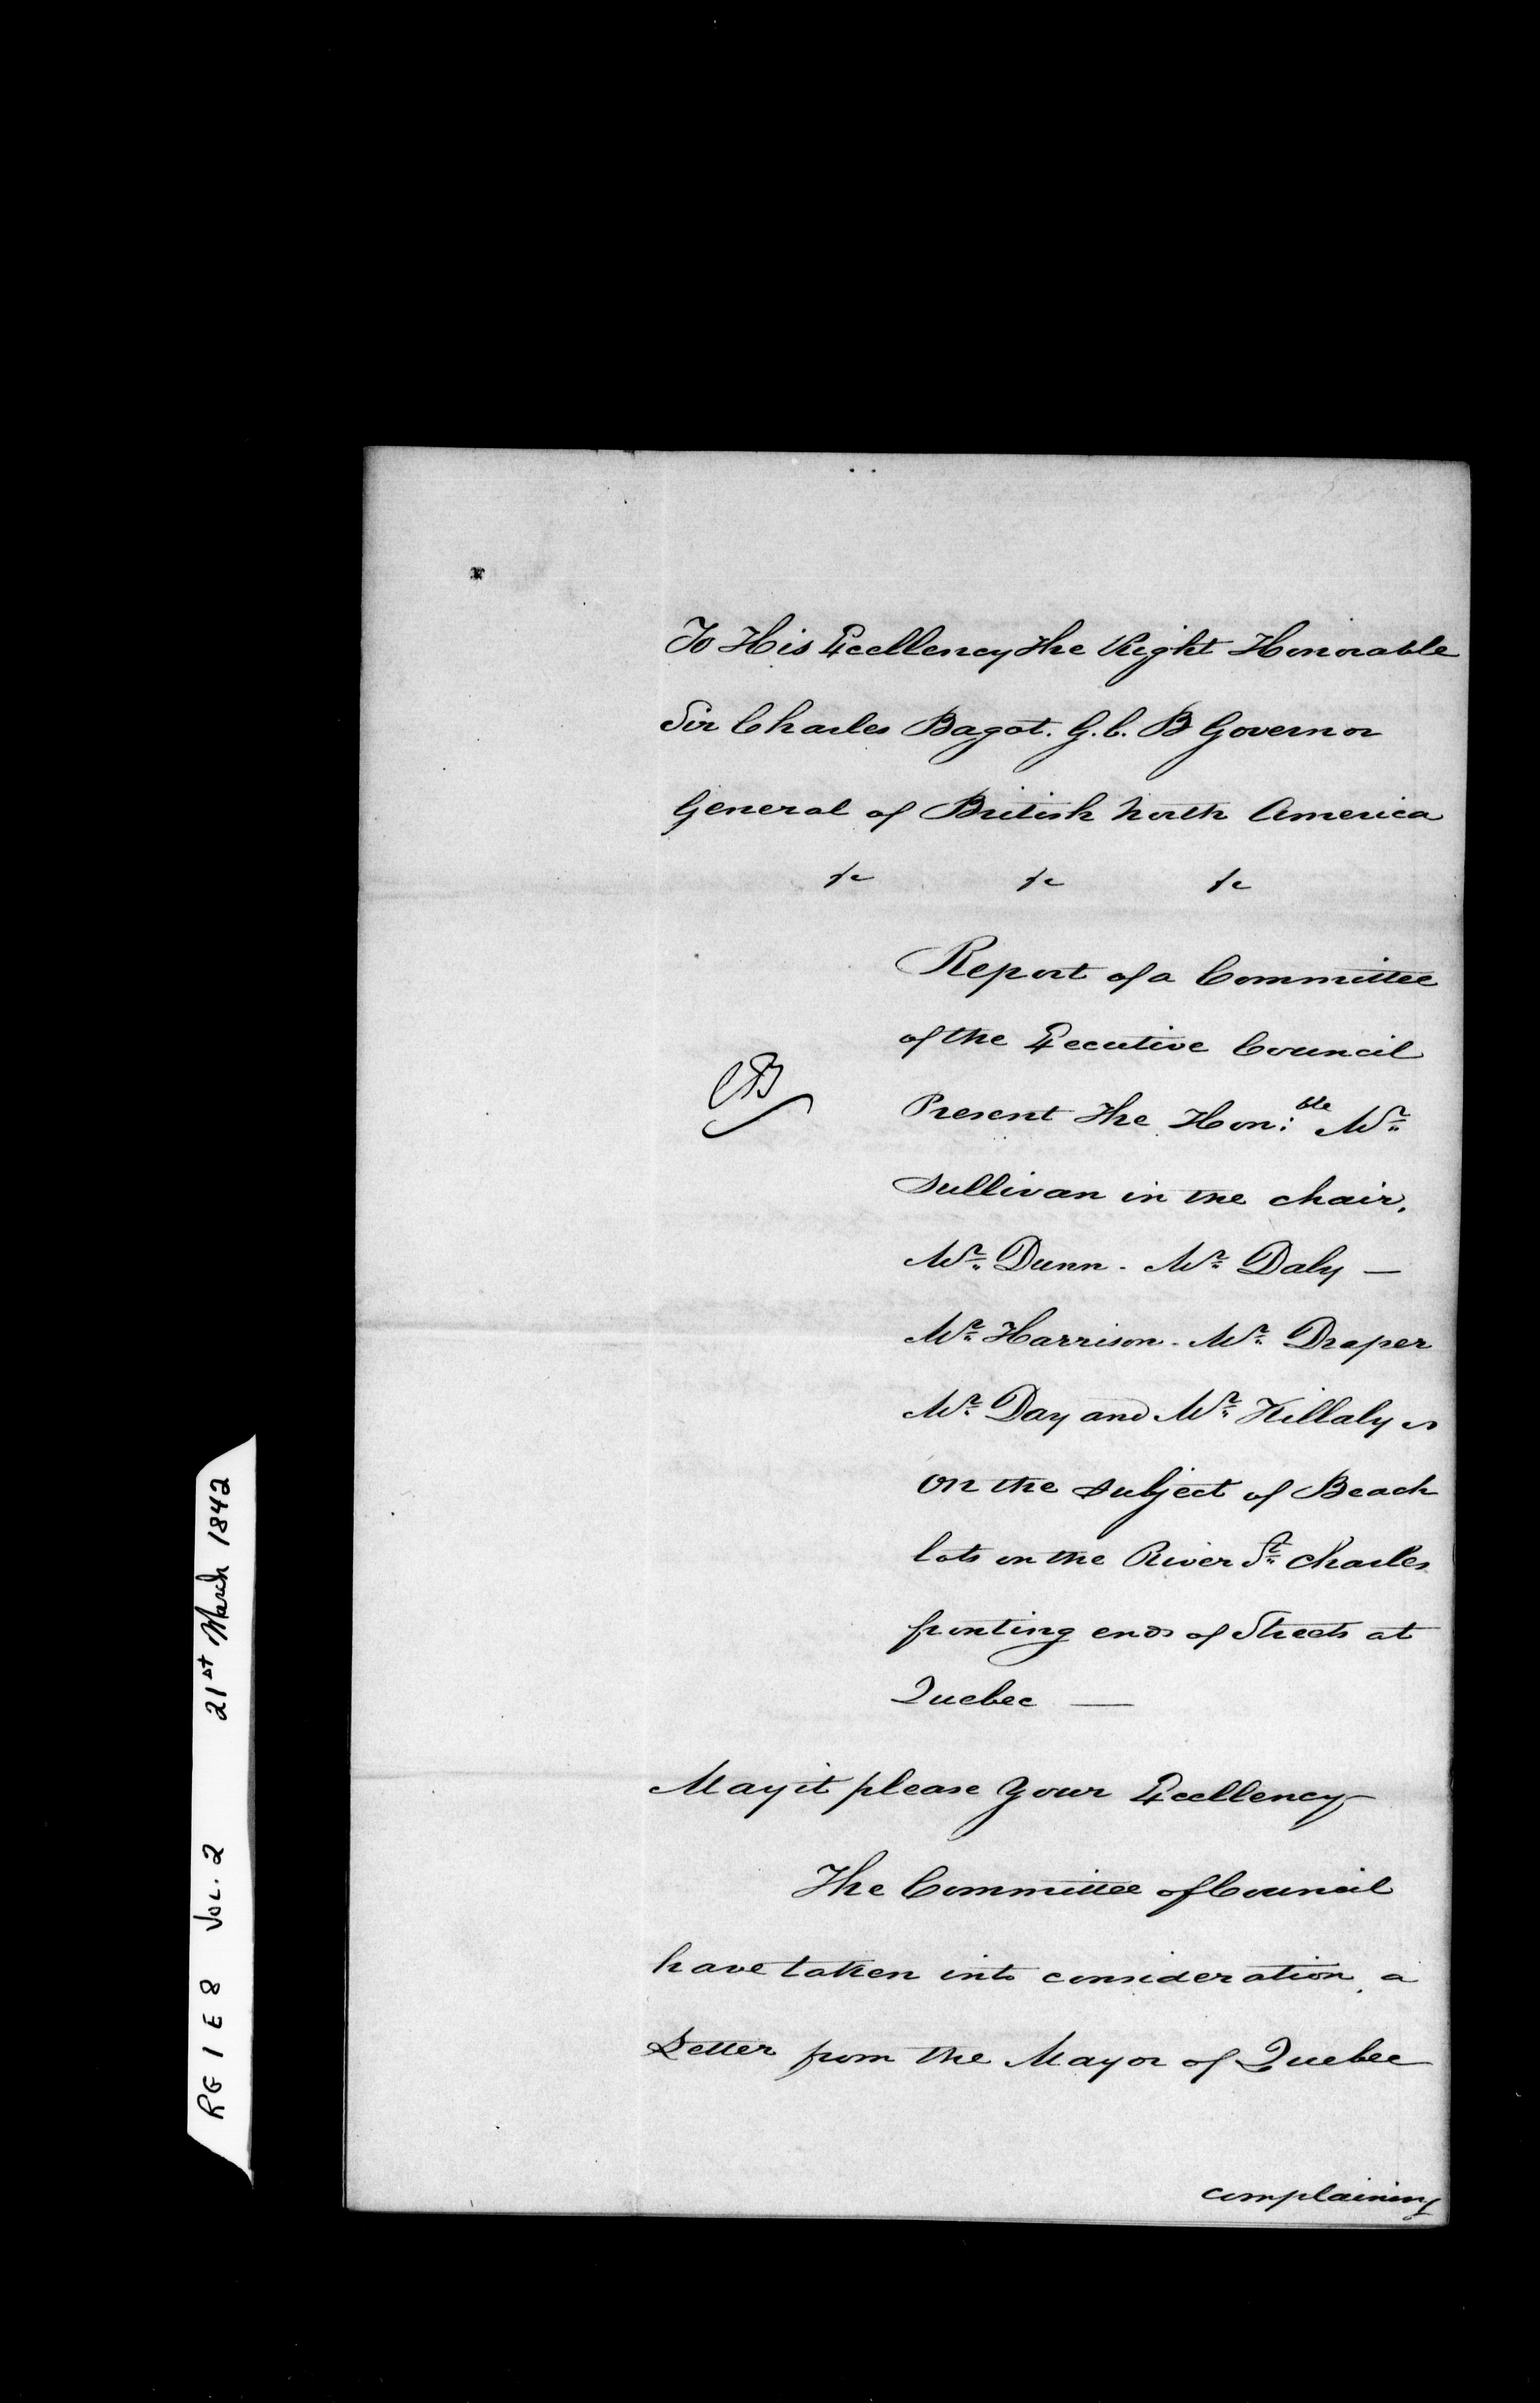 To His Excellency The Right Honorable
Sir Charles Bagot. G.C.B Governor
General of British North America
&c &c &c
Report of a Committee
of the Executive Council
Present The Hon:ble Mr
Sullivan in the chair,
Mr Dunn - Mr Daly —
Mr Harrison - Mr Draper
Mr Day and Mr Killaly
On the subject of Beach
lots on the River St Charles
fronting ends of Streets at
Quebec —
CB
May it please Your Excellency
The Committee of Council
have taken into consideration, a
Letter from the Mayor of Quebec
complaining
RG 1 E 8 Vol. 2 21st March 1842